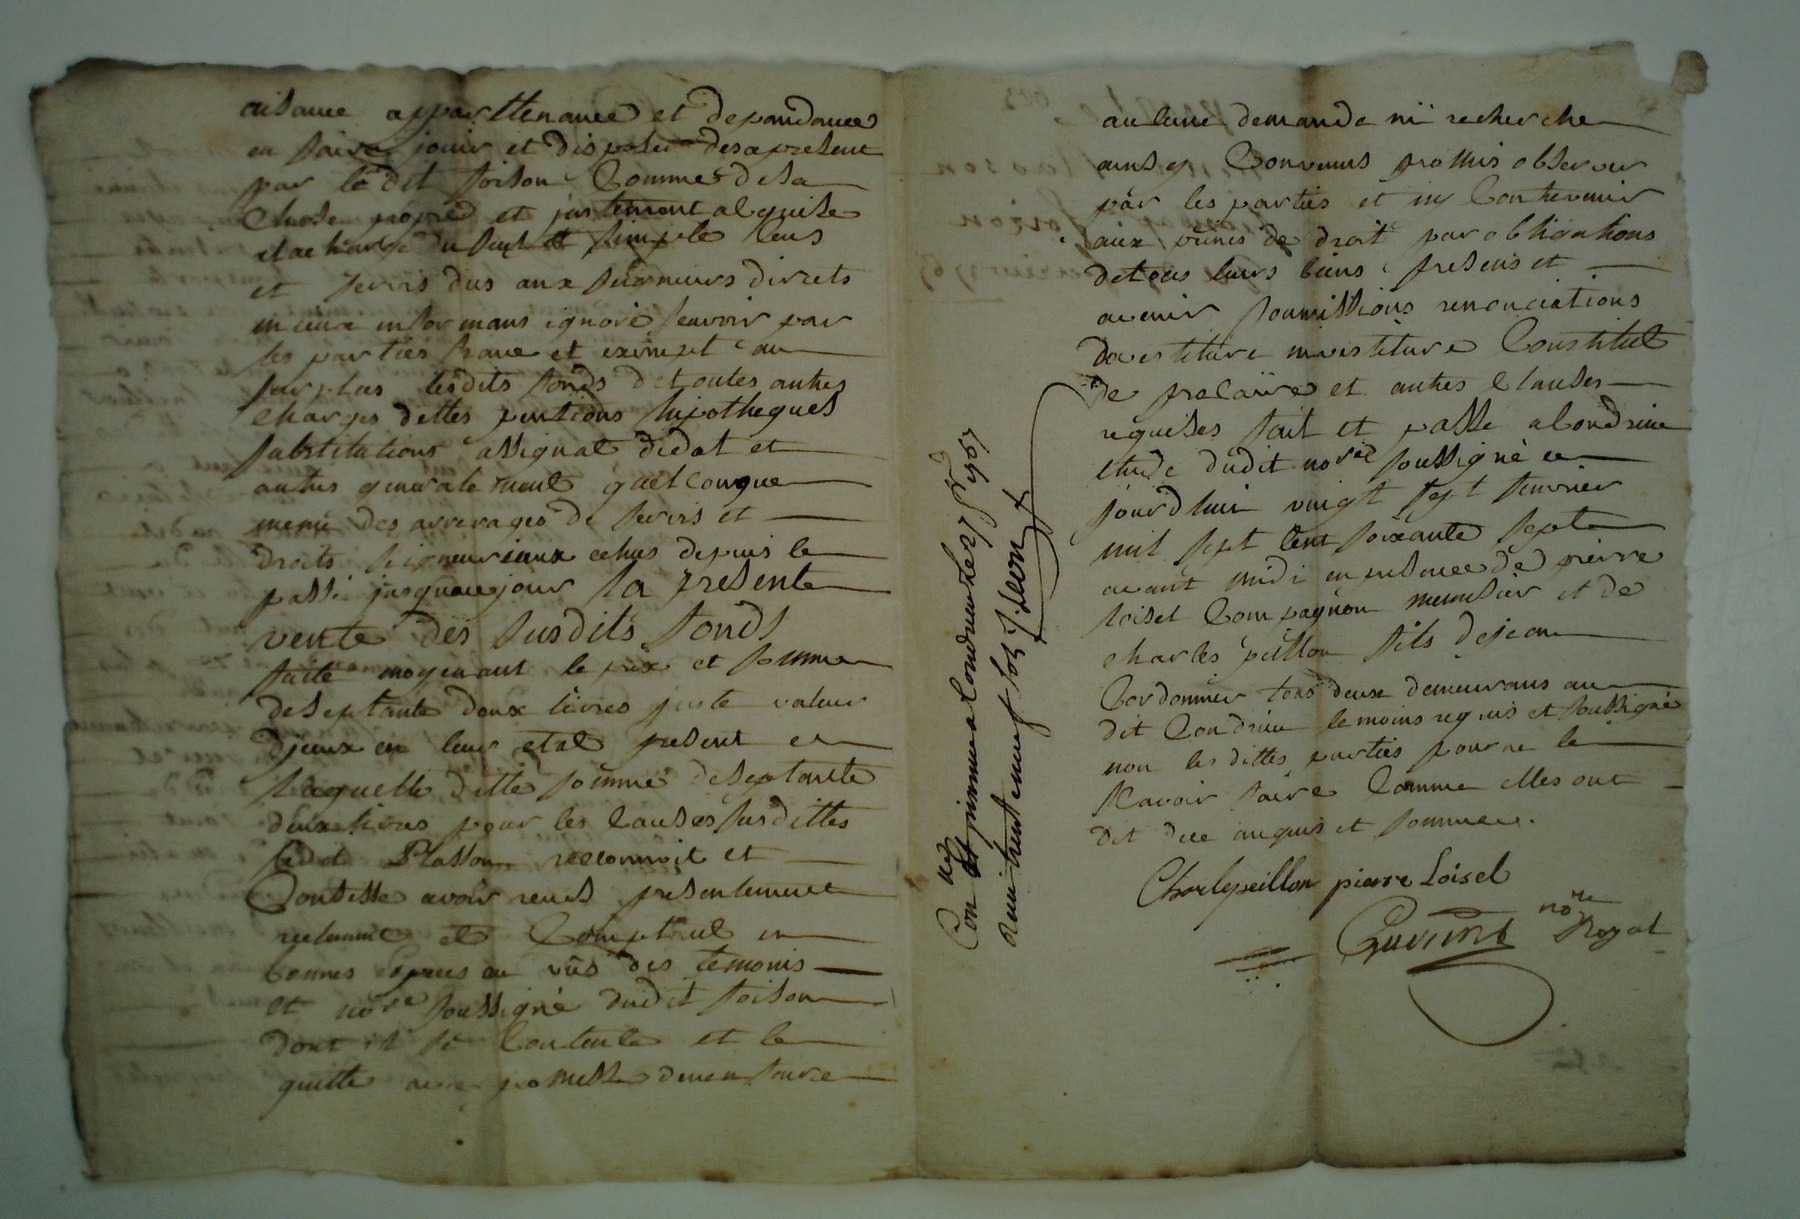 aisance appartenance et depandance
en faire jouir et disposer desapresent
par le dit foison Comme de sa
Chose propre et justement alquise
et acharge du seul et simple cens
et servis dus aux seigneurs directs
mieux informans ignoré scavoir par
les parties franc et exempt au
surplus lesdits fonds de toutes autres
charges dettes pentions hipotheques
substitutions assignat dedot et
autres generalement quelconque
meme des arrerages de servis et
droits seigneuriaux echus depuis le
passé jusquacejour la presente
vente des susdits fonds
faite moyenant le prix et somme
deseptante deux livres juste valeur
diceux en leur etat present et
laquelle ditte somme deseptante
deux livres pour les Causes susdittes
ledit Plasson reconnoit et
Confesse avoir recus presentement
reelement et Comptant en
bonnes Especes au vûs des temonis
et nore soussigné dudit foison
dont il se Contente et le
quitte avec promesse denen faire
aucune demande ni recherche
ainsy Convenus promis observer
par les parties et ny Contrevenir
aux peines de droit par obligations
detous leurs biens presens et
avenir soumissions renonciations
devestiture investiture Constitut
de precaire et autres Clauses
requises fait et passé a Condrieu
etude dudit nore soussigné ce
jourdhui vingt sept fevrier
mil sept Cent soixante sept
avant midi en presence de pierre
loisel Compagnon menusier et de
charles peillon fils dejean
Cordonnier tous deux demeurans au
dit Condrieu temoins requis et soussigné
non les dittes parties pour ne le
scavoir faire Comme elles ont
dit dece enquis et sommées.
Charle peillon pierre Loisel
nore
Royal
Con
a Condrieu le 27 fr 1767
Recu trente neuf sols